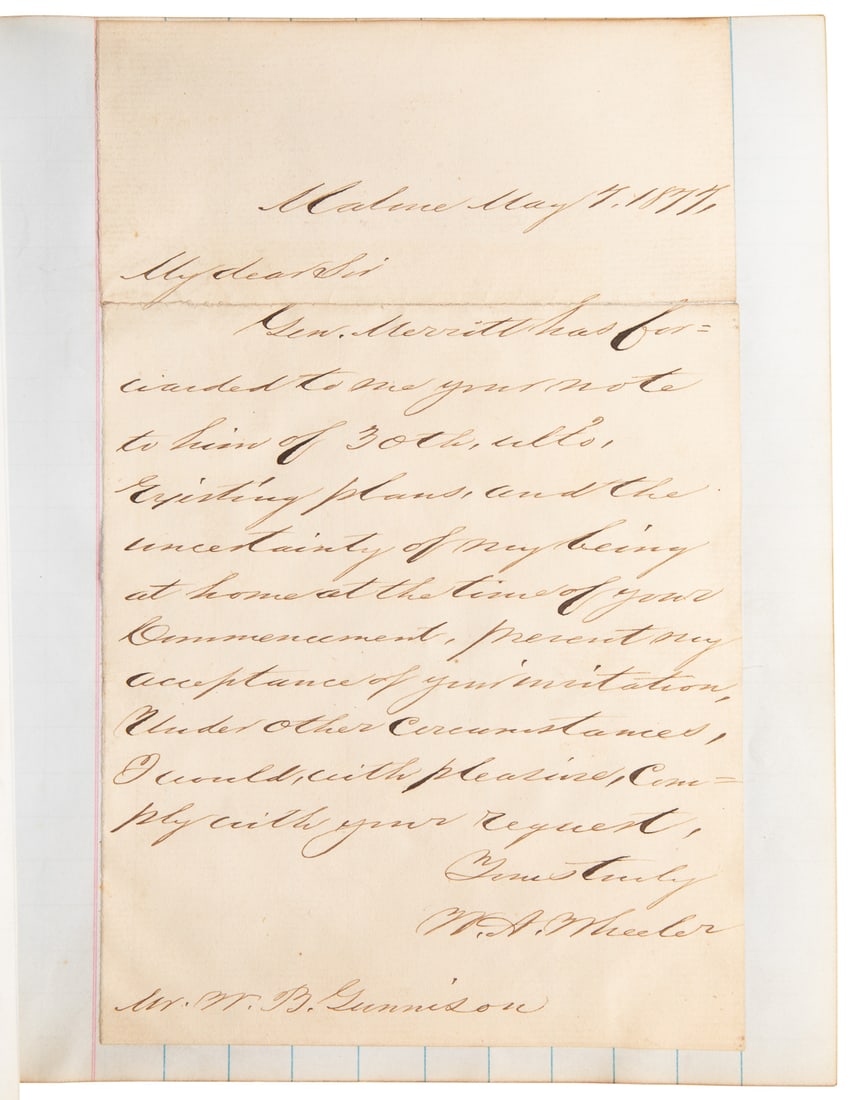 Malone May 7. 1877,
My dear Sir
Gen. Merritt has for=
warded to me your note
to him of 30th, ulto,
Existing plans, and the
uncertainty of my being
at home at the time of your
Commencement, prevent my
acceptance of your invitation,
Under other circumstances,
I would, with pleasure, com=
ply with your request,
Yours truly
W. A. Wheeler
Mr. W. B. Gunnison